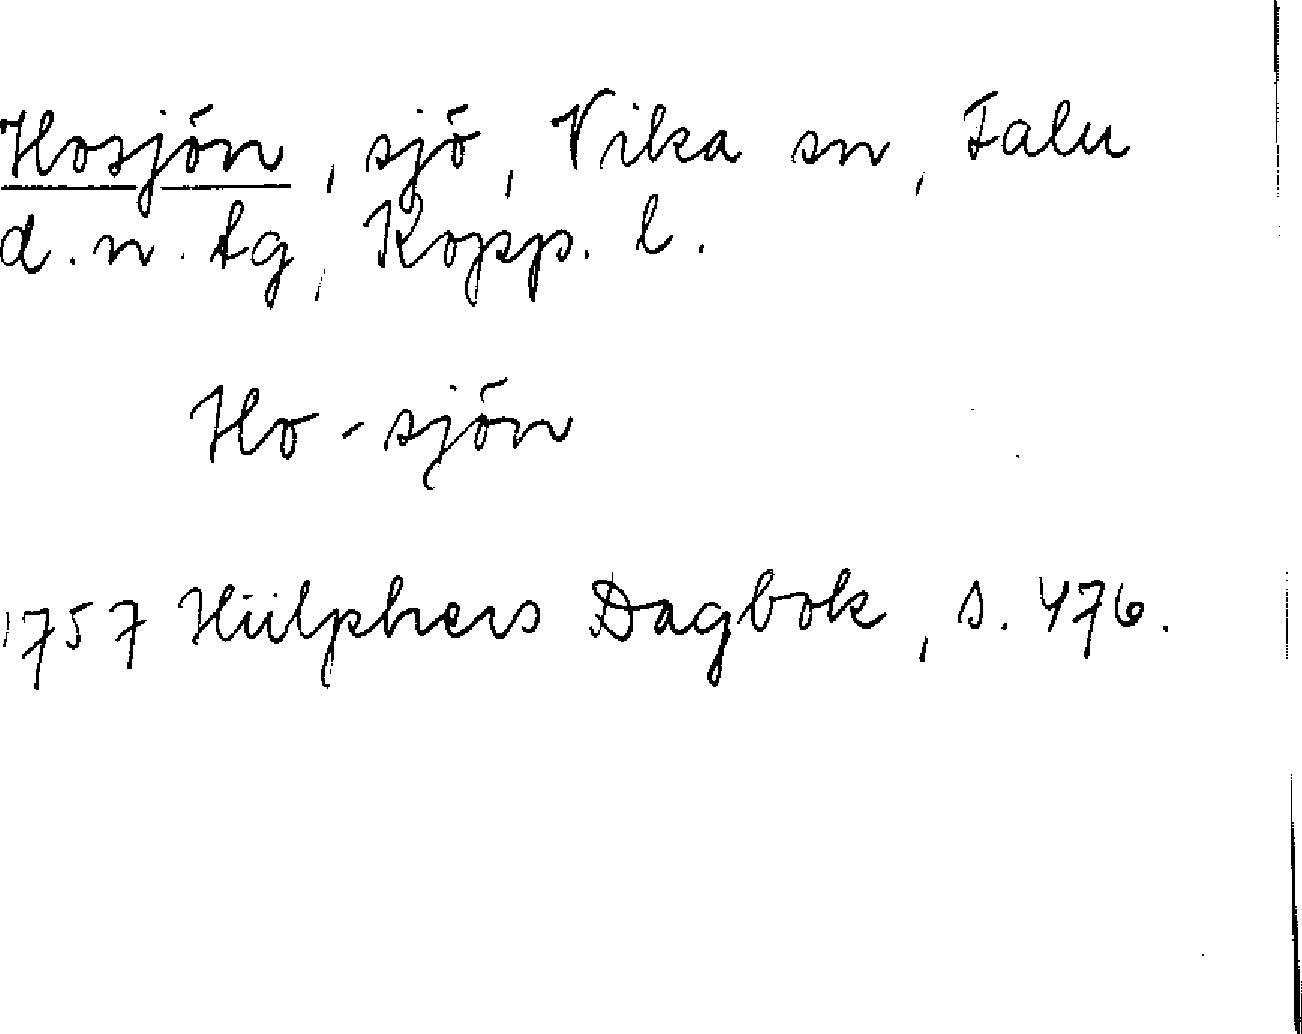 Hosjön, sjö, Vika sn, Falu
d. n. tg, Kopp. l.
Ho-sjön
1757 Hülphers Dagbok, s. 476.